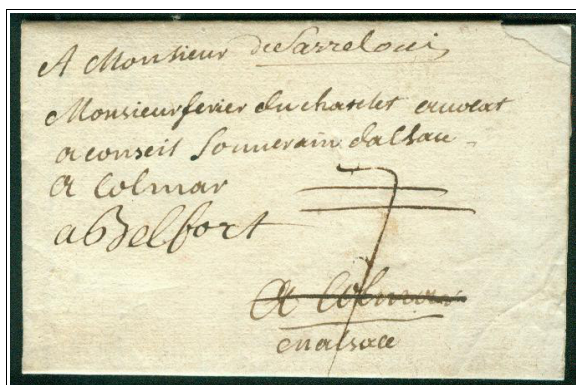 A Monsieur de Sarrelouis
Monsieur ferier du chatelet avocat
a conseil Souverain dalsace
a Colmar
a Belfort
7
a Colmar
en alsace